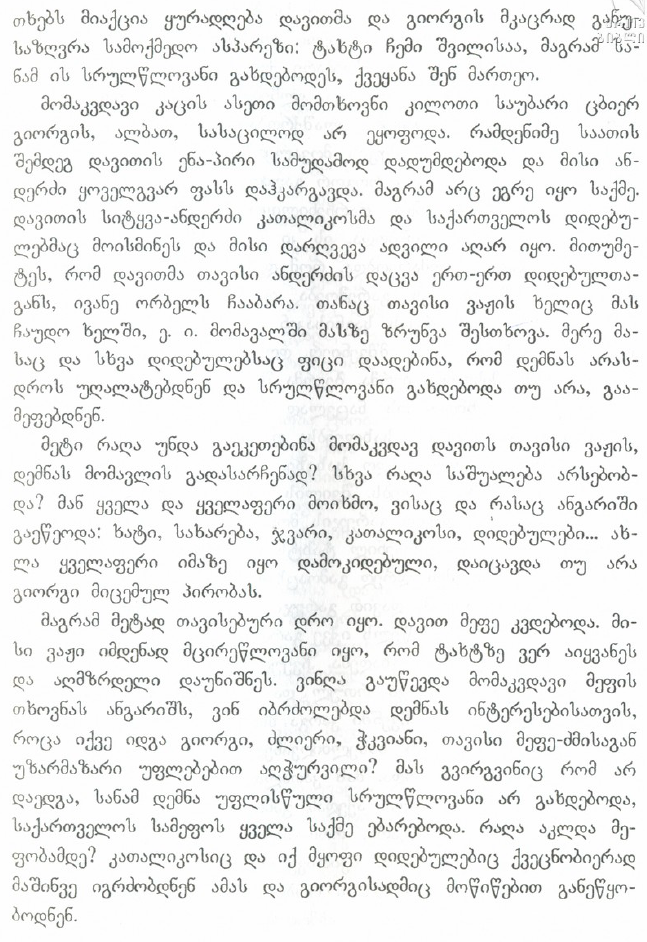 თხებს მიაქცია ყურადღება დავითმა და გიორგის მკაცრად განუ-
საზღვრა სამოქმედო ასპარეზი: ტახტი ჩემი შვილისაა, მაგრამ სა-
ნამ ის სრულწლოვანი გახდებოდეს, ქვეყანა შენ მართეო.
მომაკვდავი კაცის ასეთი მომთხოვნი კილოთი საუბარი ცბიერ
გიორგის, ალბათ, სასაცილოდ არ ეყოფოდა. რამდენიმე საათის
შემდეგ დავითის ენა-პირი სამუდამოდ დადუმდებოდა და მისი ან-
დერძი ყოველგვარ ფასს დაჰკარგავდა. მაგრამ არც ეგრე იყო საქმე.
დავითის სიტყვა-ანდერძი კათალიკოსმა და საქართველოს დიდებუ-
ლებმაც მოისმინეს და მისი დარღვევა ადვილი აღარ იყო. მითუმე-
ტეს, რომ დავითმა თავისი ანდერძის დაცვა ერთ-ერთ დიდებულთა-
განს, ივანე ორბელს ჩააბარა. თანაც თავისი ვაჟის ხელიც მას
ჩაუდო ხელში, ე. ი. მომავალში მასზე ზრუნვა შესთხოვა. მერე მა-
საც და სხვა დიდებულებსაც ფიცი დაადებინა, რომ დემნას არას-
დროს უღალატებდნენ და სრულწლოვანი გახდებოდა თუ არა, გაა-
მეფებდნენ.
მეტი რაღა უნდა გაეკეთებინა მომაკვდავ დავითს თავისი ვაჟის,
დემნას მომავლის გადასარჩენად? სხვა რაღა საშუალება არსებობ-
და? მან ყველა და ყველაფერი მოიხმო, ვისაც და რასაც ანგარიში
გაეწეოდა: ხატი, სახარება, ჯვარი, კათალიკოსი, დიდებულები... ახ-
ლა ყველაფერი იმაზე იყო დამოკიდებული, დაიცავდა თუ არა
გიორგი მიცემულ პირობას.
მაგრამ მეტად თავისებური დრო იყო. დავით მეფე კვდებოდა. მი-
სი ვაჟი იმდენად მცირეწლოვანი იყო, რომ ტახტზე ვერ აიყვანეს
და აღმზრდელი დაუნიშნეს. ვინღა გაუწევდა მომაკვდავი მეფის
თხოვნას ანგარიშს, ვინ იბრძოლებდა დემნას ინტერესებისათვის,
როცა იქვე იდგა გიორგი, ძლიერი, ჭკვიანი, თავისი მეფე-ძმისაგან
უზარმაზარი უფლებებით აღჭურვილი? მას გვირგვინიც რომ არ
დაედგა, სანამ დემნა უფლისწული სრულწლოვანი არ გახდებოდა,
საქართველოს სამეფოს ყველა საქმე ებარებოდა. რაღა აკლდა მე-
ფობამდე? კათალიკოსიც და იქ მყოფი დიდებულებიც ქვეცნობიერად
მაშინვე იგრძობდნენ ამას და გიორგისადმიც მოწიწებით განეწყო-
ბოდნენ.